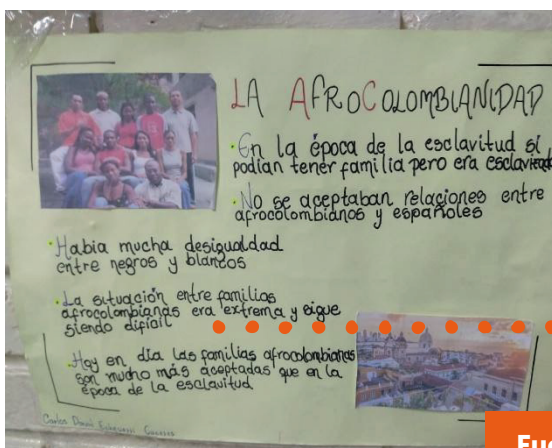 LA AFROCOLOMBIANIDAD
• En la época de la esclavitud si
podian tener familia pero era esclavizada
• No se aceptaban relaciones entre
afrocolombianos y españoles
• Habia mucha desigualdad
entre negros y blancos
• La situación entre familias
afrocolombianas era extrema y sigue
siendo dificil
• Hoy en día las familias afrocolombianas
son mucho más aceptadas que en la
época de la esclavitud
Carlos